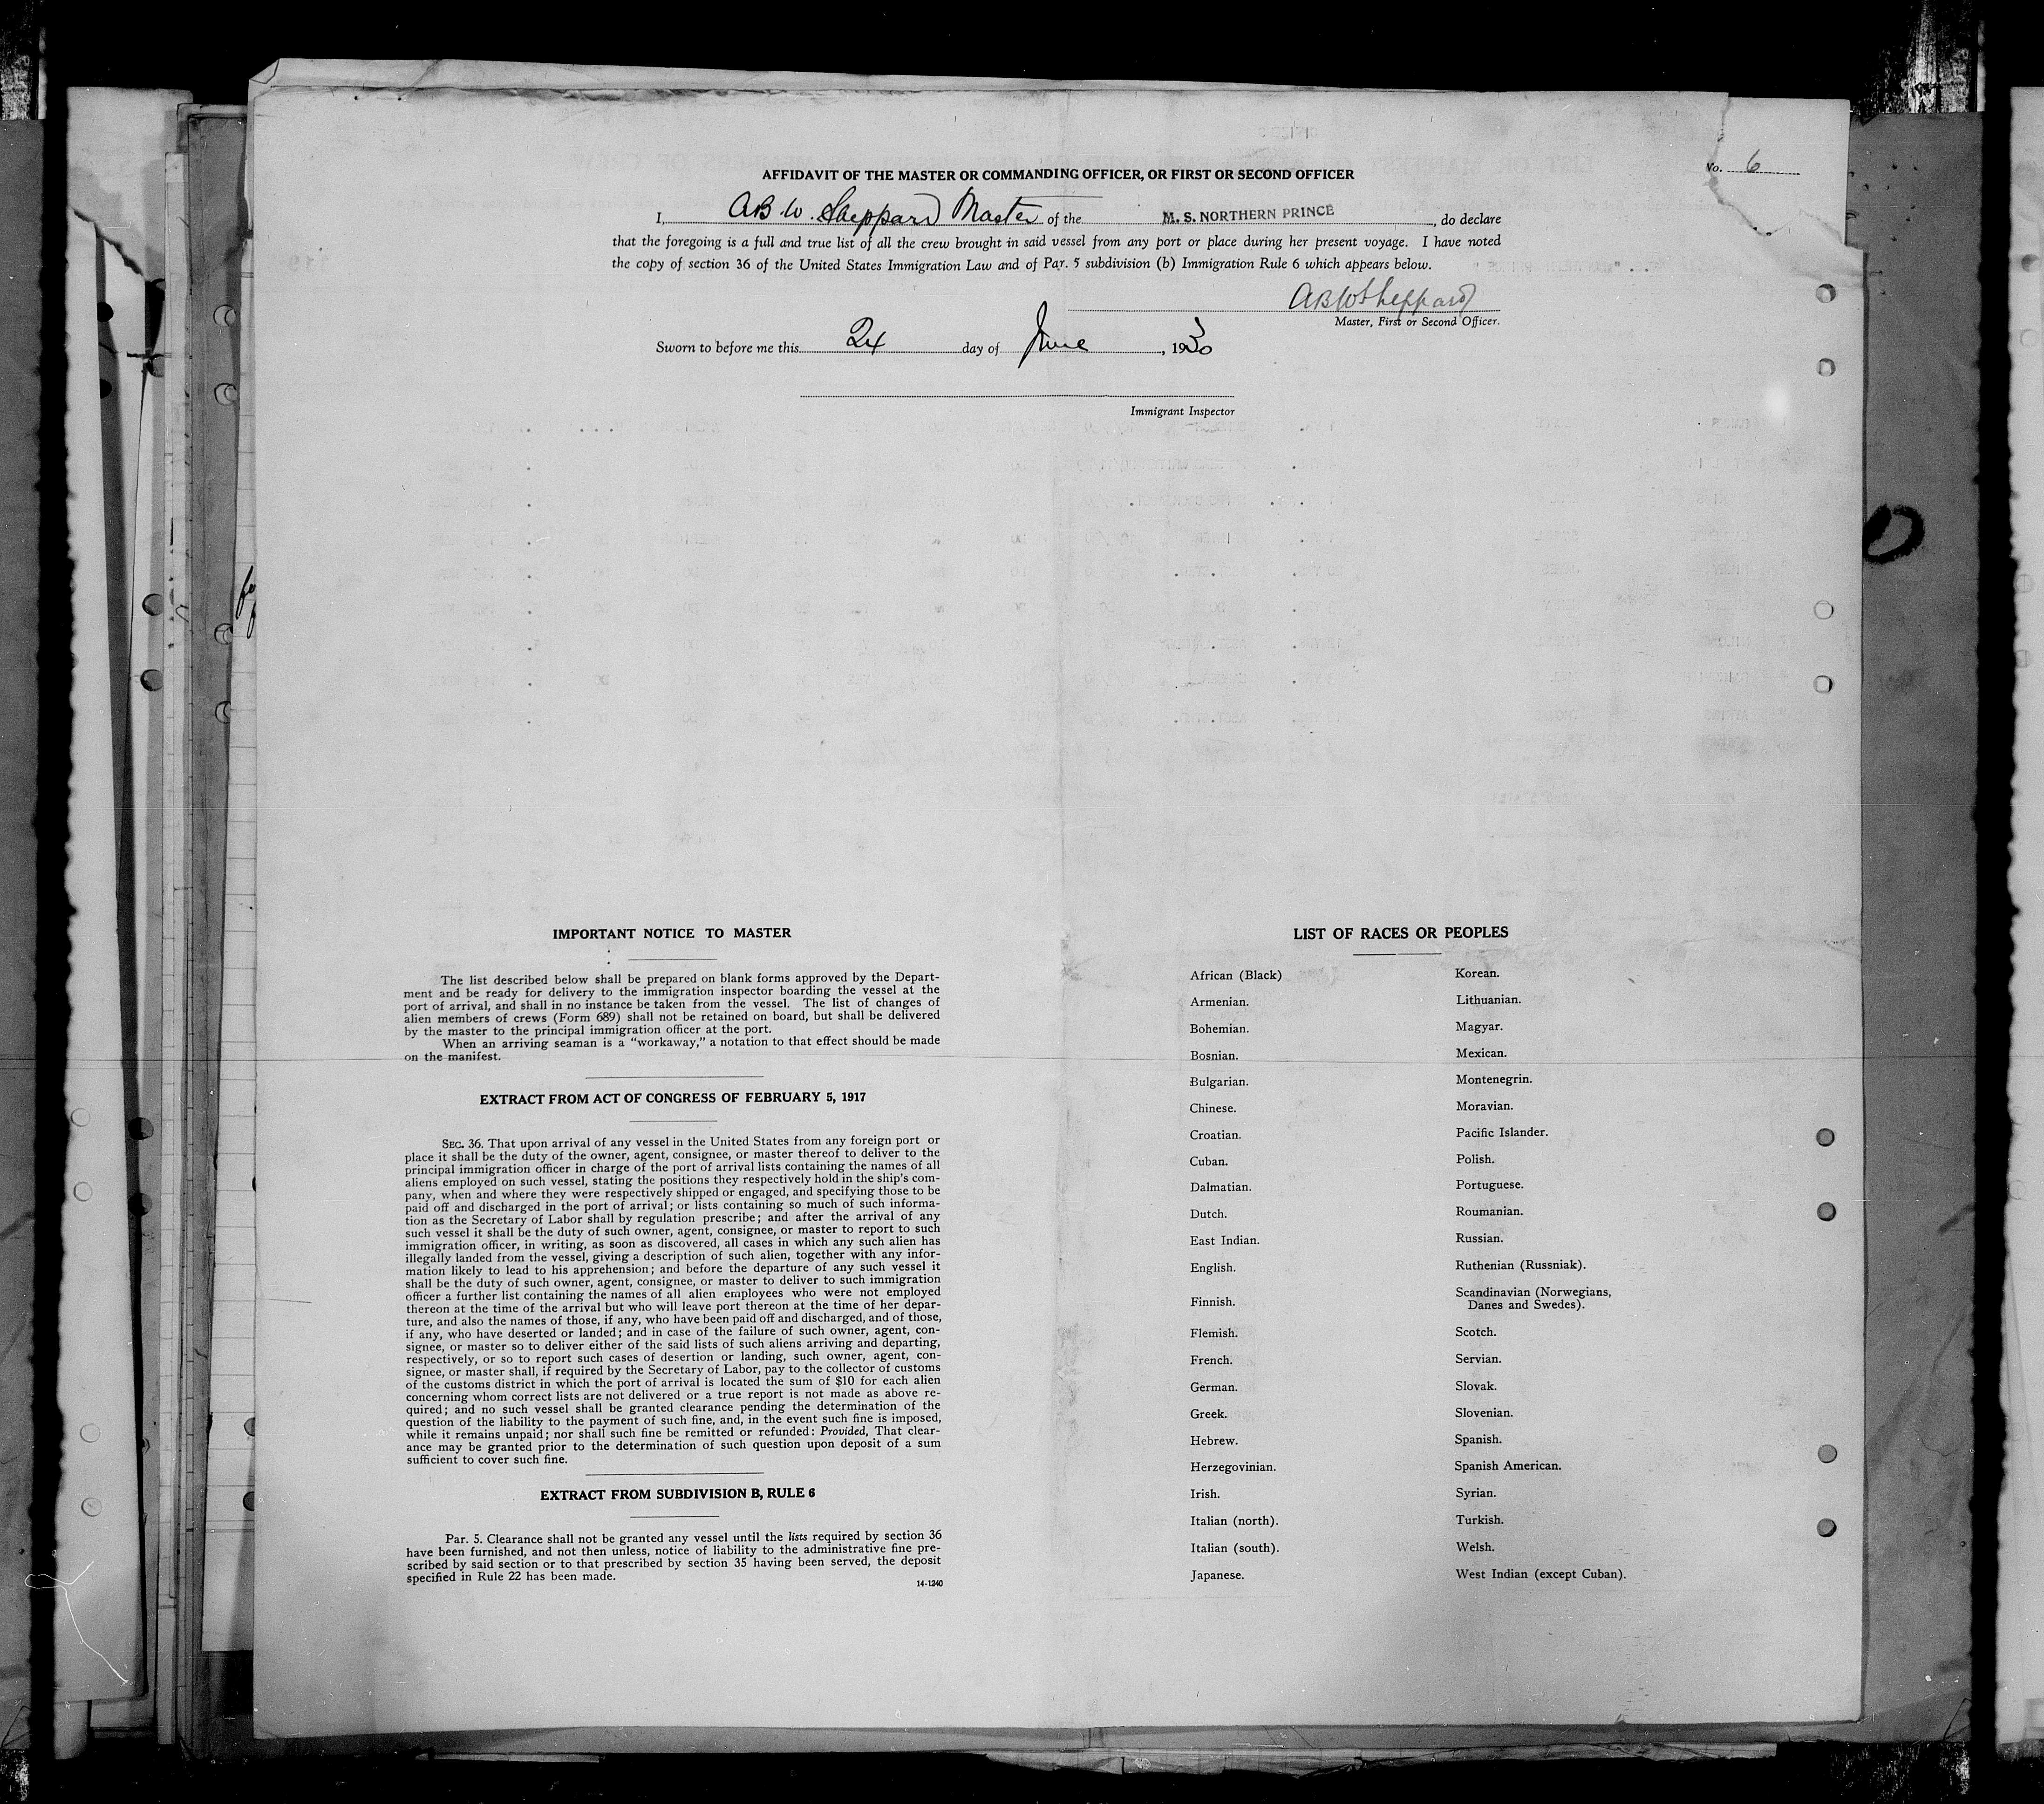 No. 6
AFFIDAVIT OF THE MASTER OR COMMANDING OFFICER, OR FIRST OR SECOND OFFICER
I, AB W. Sheppard Master of the M. S. NORTHERN PRINCE, do declare
that the foregoing is a full and true list of all the crew brought in said vessel from any port or place during her present voyage. I have noted
the copy of section 36 of the United States Immigration Law and of Par. 5 subdivision (b) Immigration Rule 6 which appears below.
ABW Sheppard
Master, First or Second Officer.
Sworn to before me this 24 day of June, 1930
Immigrant Inspector
IMPORTANT NOTICE TO MASTER
The list described below shall be prepared on blank forms approved by the Depart-
ment and be ready for delivery to the immigration inspector boarding the vessel at the
port of arrival, and shall in no instance be taken from the vessel. The list of changes of
alien members of crews (Form 689) shall not be retained on board, but shall be delivered
by the master to the principal immigration officer at the port.
When an arriving seaman is a "workaway," a notation to that effect should be made
on the manifest.
EXTRACT FROM ACT OF CONGRESS OF FEBRUARY 5, 1917
SEC. 36. That upon arrival of any vessel in the United States from any foreign port or
place it shall be the duty of the owner, agent, consignee, or master thereof to deliver to the
principal immigration officer in charge of the port of arrival lists containing the names of all
aliens employed on such vessel, stating the positions they respectively hold in the ship's com-
pany, when and where they were respectively shipped or engaged, and specifying those to be
paid off and discharged in the port of arrival; or lists containing so much of such informa-
tion as the Secretary of Labor shall by regulation prescribe; and after the arrival of any
such vessel it shall be the duty of such owner, agent, consignee, or master to report to such
immigration officer, in writing, as soon as discovered, all cases in which any such alien has
illegally landed from the vessel, giving a description of such alien, together with any infor-
mation likely to lead to his apprehension; and before the departure of any such vessel it
shall be the duty of such owner, agent, consignee, or master to deliver to such immigration
officer a further list containing the names of all alien employees who were not employed
thereon at the time of the arrival but who will leave port thereon at the time of her depar-
ture, and also the names of those, if any, who have been paid off and discharged, and of those,
if any, who have deserted or landed; and in case of the failure of such owner, agent, con-
signee, or master so to deliver either of the said lists of such aliens arriving and departing,
respectively, or so to report such cases of desertion or landing, such owner, agent, con-
signee, or master shall, if required by the Secretary of Labor, pay to the collector of customs
of the customs district in which the port of arrival is located the sum of $10 for each alien
concerning whom correct lists are not delivered or a true report is not made as above re-
quired; and no such vessel shall be granted clearance pending the determination of the
question of the liability to the payment of such fine, and, in the event such fine is imposed,
while it remains unpaid; nor shall such fine be remitted or refunded: Provided, That clear-
ance may be granted prior to the determination of such question upon deposit of a sum
sufficient to cover such fine.
EXTRACT FROM SUBDIVISION B, RULE 6
Par. 5. Clearance shall not be granted any vessel until the lists required by section 36
have been furnished, and not then unless, notice of liability to the administrative fine pre-
scribed by said section or to that prescribed by section 35 having been served, the deposit
specified in Rule 22 has been made.
14-1240
LIST OF RACES OR PEOPLES
African (Black)
Armenian.
Bohemian.
Bosnian.
Bulgarian.
Chinese.
Croatian.
Cuban.
Dalmatian.
Dutch.
East Indian.
English.
Finnish.
Flemish.
French.
German.
Greek.
Hebrew.
Herzegovinian.
Irish.
Italian (north).
Italian (south).
Japanese.
Korean.
Lithuanian.
Magyar.
Mexican.
Montenegrin.
Moravian.
Pacific Islander.
Polish.
Portuguese.
Roumanian.
Russian.
Ruthenian (Russniak).
Scandinavian (Norwegians,
Danes and Swedes).
Scotch.
Servian.
Slovak.
Slovenian.
Spanish.
Spanish American.
Syrian.
Turkish.
Welsh.
West Indian (except Cuban).